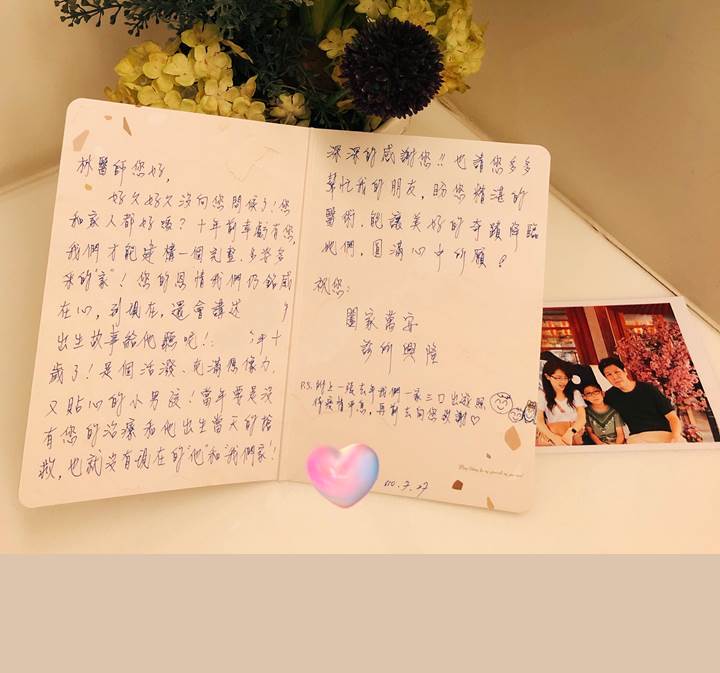 林醫師您好,
好久好久沒向您問候了!您
和家人都好嗎?十年前幸虧有您,
我們才能建構一個完整、多姿多
采的"家"!您的恩情我們仍銘感
在心,到現在,還會講述
出生故事給他聽呢!: 今年十
歲了!是個活潑、充滿想像力、
又貼心的小男孩!當年要是沒
有您的治療和他出生當天的搶
救,也就沒有現在的"他"和"我們家"!
深深的感謝您!!也請您多多
幫忙我的朋友,盼您精湛的
醫術,能讓美好的奇蹟降臨
她們,圓滿心中所願。
祝您:
闔家萬安
診所興隆
P.S. 附上一張去年我們一家三口出遊照
作受精平息,再向您致謝♡
110.3.27